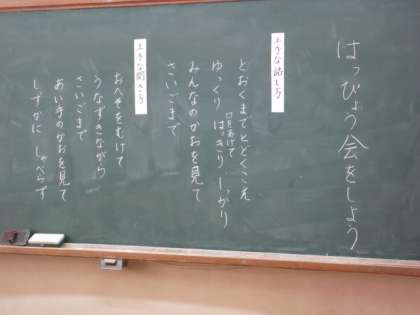 はっぴょう会をしよう
上手な話し方
とおくまでとどくこえ
口をあけて
ゆっくり はっきり しっかり
みんなのかおを見て
さいごまで
上手な聞き方
おへそをむけて
うなずきながら
さいごまで
あい手のかおを見て
しずかに しゃべらず